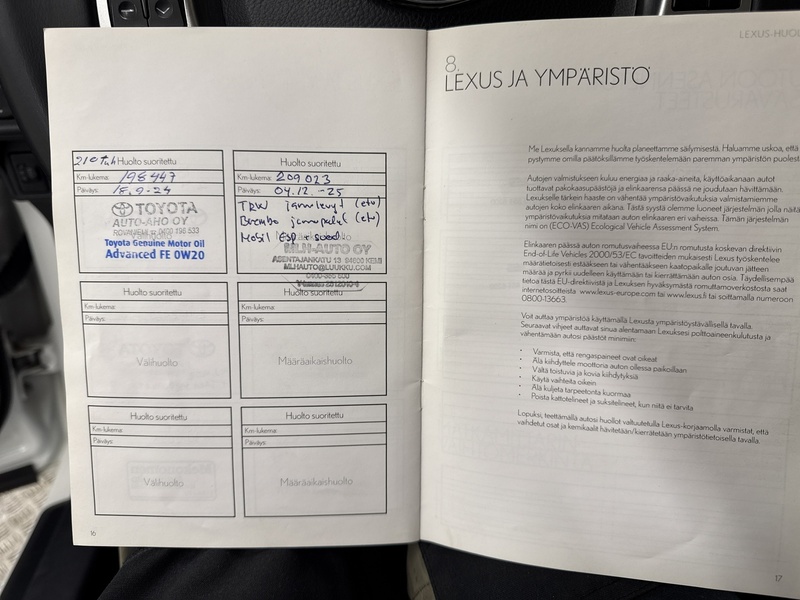 210 tuh Huolto suoritettu
Km-lukema: 198447
Päiväys: 18.9-24
TOYOTA
AUTO-AHO OY
ROVANIEMI
Toyota Genuine Motor Oil
Advanced FE 0W20
Huolto suoritettu
Km-lukema: 209.023
Päiväys: 04.12.-25
TRW jarrulevyt (etu)
Brembo jarrupalat (etu)
Mobil ESP + suod.
MLH-AUTO OY
ASENTAJANKATU 13, 94600 KEMI
MLHAUTO@LUUKKU.COM
Huolto suoritettu
Km-lukema:
Päiväys:
Välihuolto
Huolto suoritettu
Km-lukema:
Päiväys:
Määräaikaishuolto
Huolto suoritettu
Km-lukema:
Päiväys:
Välihuolto
Huolto suoritettu
Km-lukema:
Päiväys:
Määräaikaishuolto
16
LEXUS-HUOL
8.
LEXUS JA YMPÄRISTÖ
Me Lexuksella kannamme huolta planeettamme säilymisestä. Haluamme uskoa, että
pystymme omilla päätöksillämme työskentelemään paremman ympäristön puolest
Autojen valmistukseen kuluu energiaa ja raaka-aineita, käyttöaikanaan autot
tuottavat pakokaasupäästöjä ja elinkaarensa päässä ne joudutaan hävittämään.
Lexukselle tärkein haaste on vähentää ympäristövaikutuksia valmistamiemme
autojen koko elinkaaren aikana. Tästä syystä olemme luoneet järjestelmän jolla näitä
ympäristövaikutuksia mitataan auton elinkaaren eri vaiheissa. Tämän järjestelmän
nimi on (ECO-VAS) Ecological Vehicle Assessment System.
Elinkaaren päässä auton romutusvaiheessa EU:n romutusta koskevan direktiivin
End-of-Life Vehicles 2000/53/EC tavoitteiden mukaisesti Lexus työskentelee
määrätietoisesti estääkseen tai vähentääkseen kaatopaikalle joutuvan jätteen
määrää ja pyrkii uudelleen käyttämään tai kierrättämään auton osia. Täydellisempää
tietoa tästä EU-direktiivistä ja Lexuksen hyväksymästä romuttamoverkostosta saat
internetosoitteista www.lexus-europe.com tai www.lexus.fi tai soittamalla numeroon
0800-13663.
Voit auttaa ympäristöä käyttämällä Lexusta ympäristöystävällisellä tavalla.
Seuraavat vihjeet auttavat sinua alentamaan Lexuksesi polttoaineenkulutusta ja
vähentämään autosi päästöt minimiin:
• Varmista, että rengaspaineet ovat oikeat
• Älä kiihdyttele moottoria auton ollessa paikoillaan
• Vältä toistuvia ja kovia kiihdytyksiä
• Käytä vaihteita oikein
• Älä kuljeta tarpeetonta kuormaa
• Poista kattotelineet ja suksitelineet, kun niitä ei tarvita
Lopuksi, teettämällä autosi huollot valtuutetulla Lexus-korjaamolla varmistat, että
vaihdetut osat ja kemikaalit hävitetään/kierrätetään ympäristötietoisella tavalla.
17